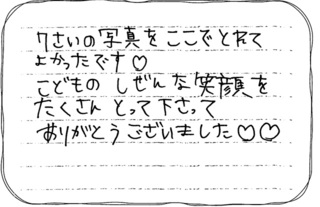 7さいの写真をここでとれて
よかったです♡
こどもの しぜんな笑顔を
たくさん とって下さって
ありがとうございました♡♡